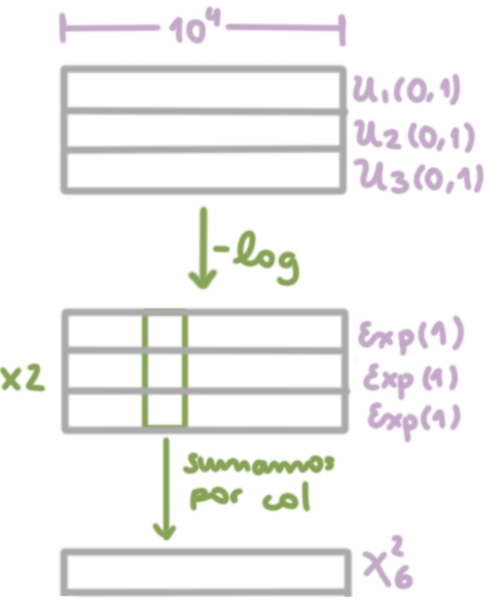 10⁴
U₁(0,1)
U₂(0,1)
U₃(0,1)
-log
Exp(1)
x2
Exp(1)
Exp(1)
sumamos
por col
X²₆